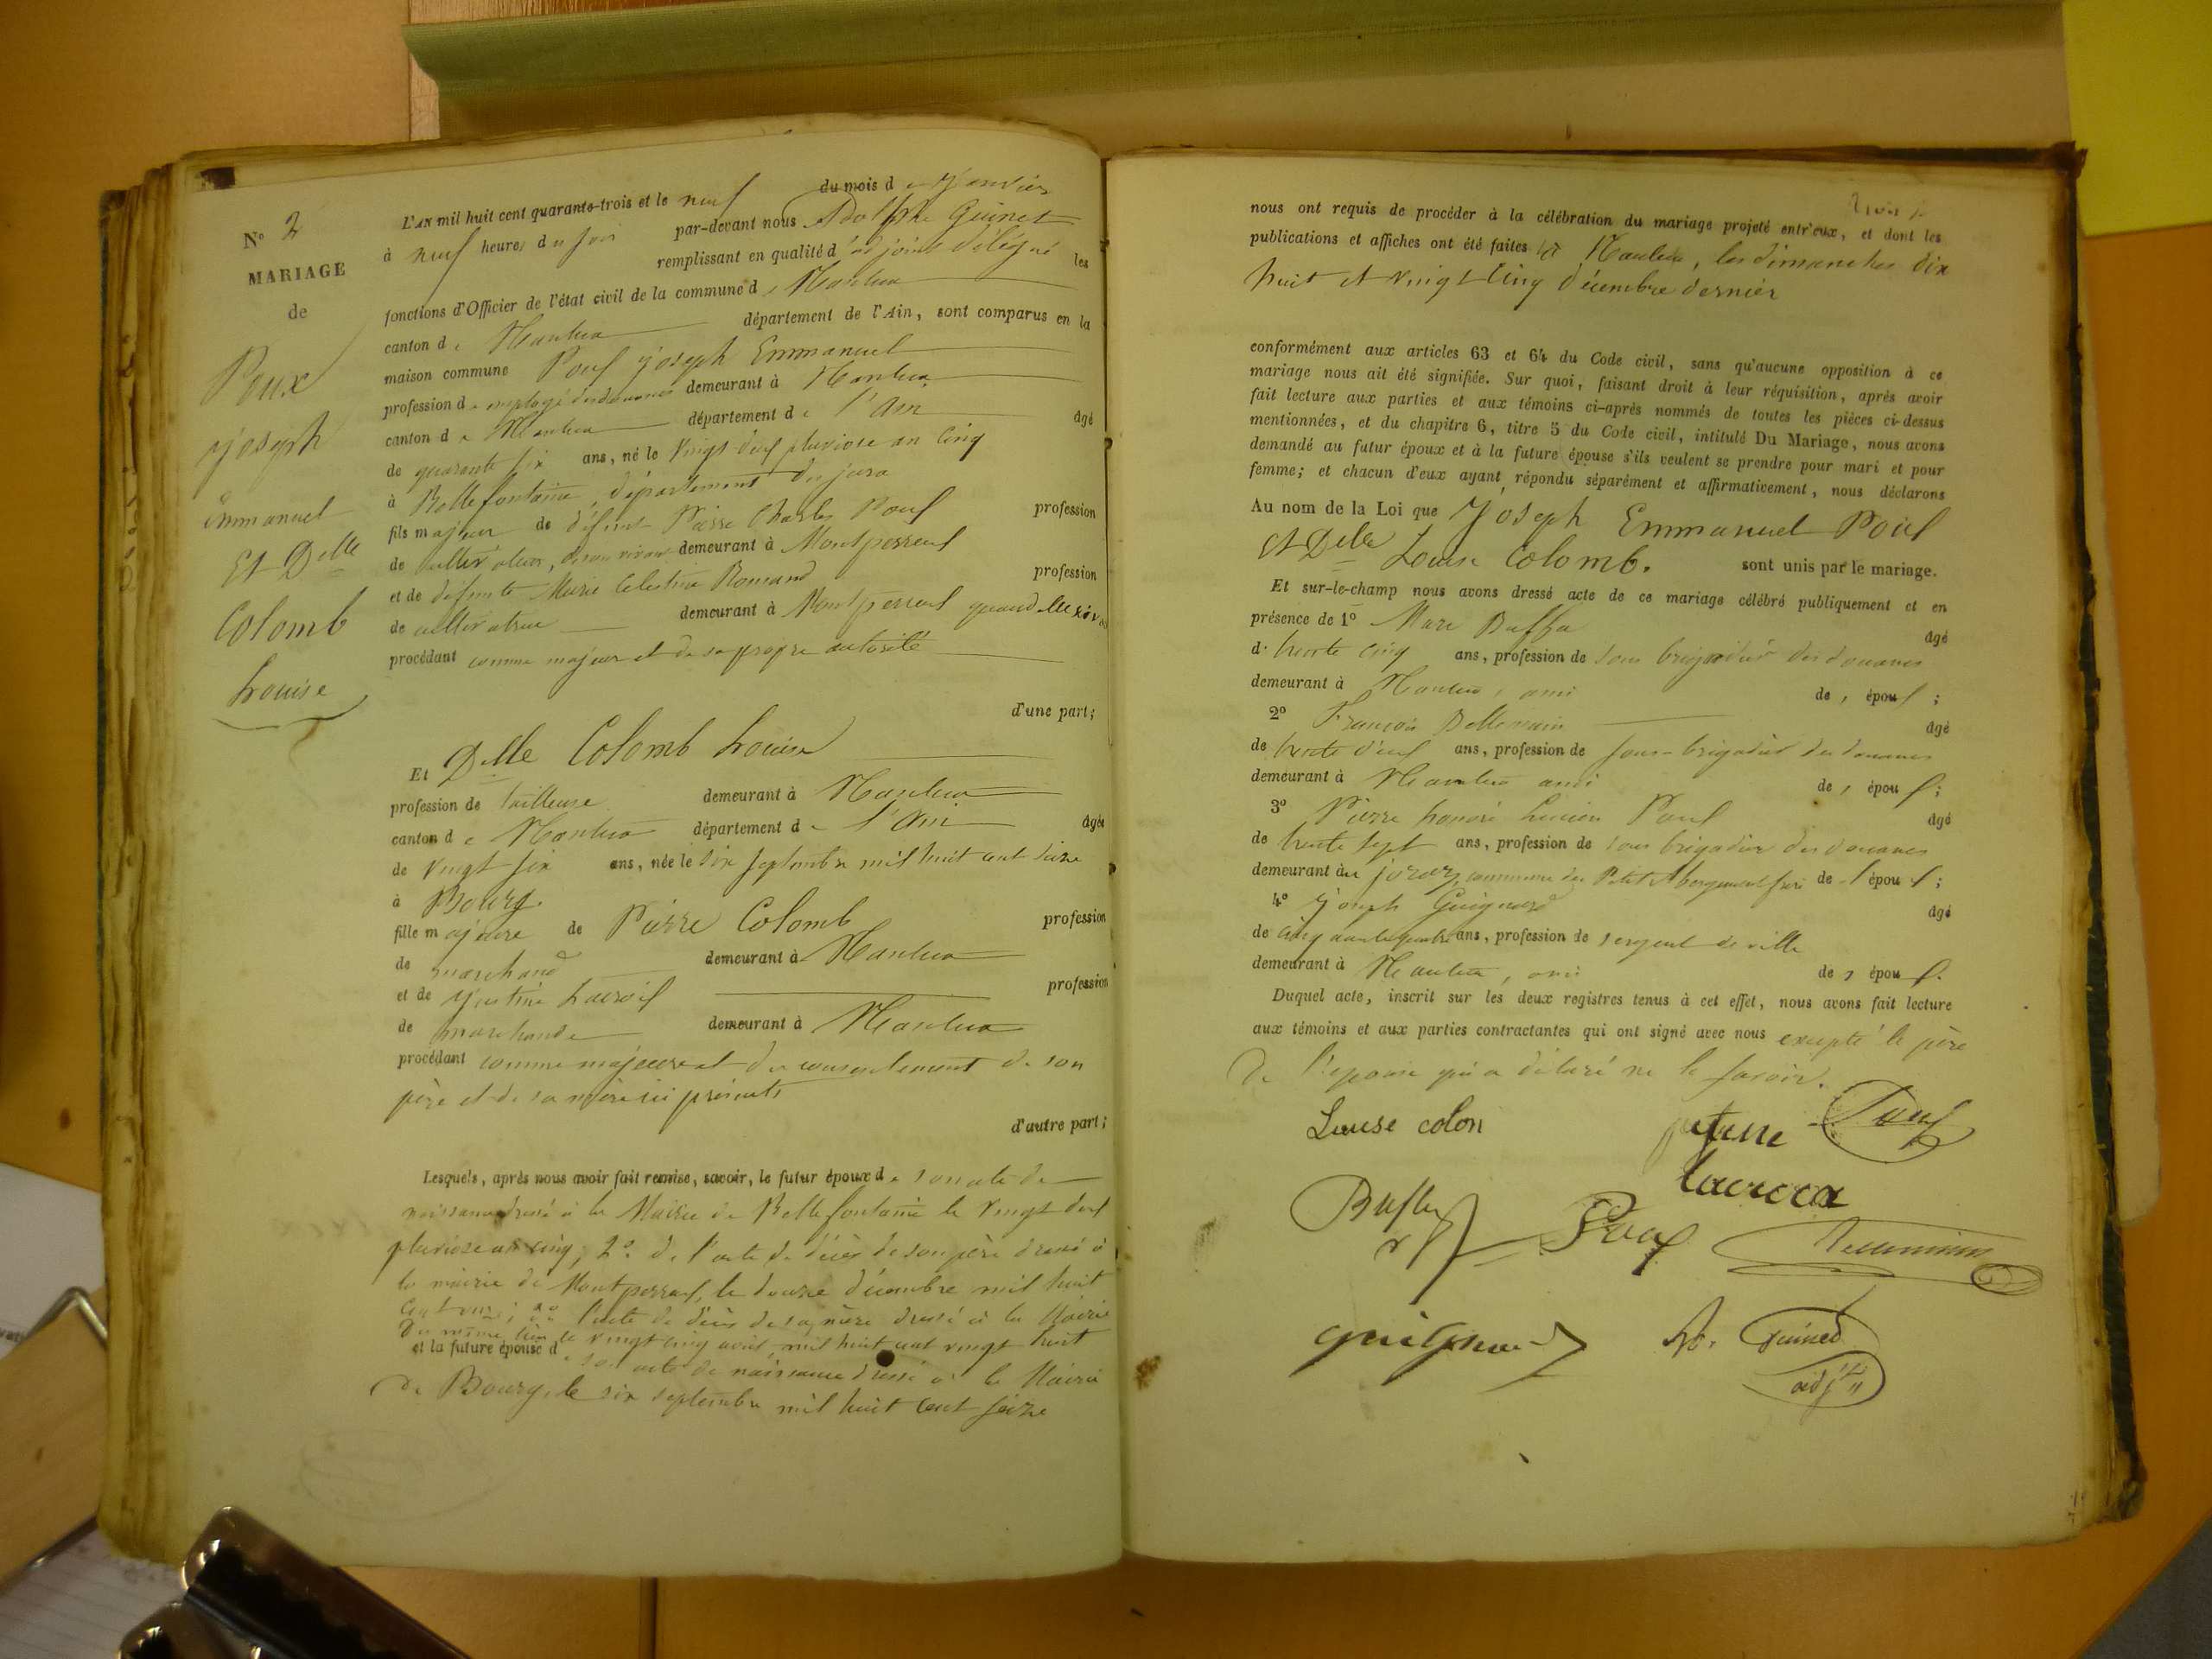 N° 2
MARIAGE
de
Poux
Joseph
Emmanuel
Et Delle
Colomb
Louise
L'AN mil huit cent quarante-trois et le neuf du mois de Janvier
à neuf heures du soir par-devant nous Adolphe Guinet
remplissant en qualité d'adjoint délégué les
fonctions d'Officier de l'état civil de la commune de Nantua
canton de Nantua département de l'Ain, sont comparus en la
maison commune Poux Joseph Emmanuel
profession d'employé des douanes demeurant à Nantua
canton de Nantua département de l'Ain âgé
de quarante six ans, né le vingt deux pluviose an cinq
à Bellefontaine, département du jura
fils majeur de défunt Pierre Charles Poux profession
de cultivateur, de son vivant demeurant à Montperreux
et de défunte Marie Celestine Romand profession
de cultivatrice demeurant à Montperreux quand elle vivait
procédant comme majeur et de sa propre autorité
d'une part;
Et Delle Colomb Louise
profession de tailleuse demeurant à Nantua
canton de Nantua département de l'Ain âgée
de vingt six ans, née le six septembre mil huit cent seize
à Bourg
fille majeure de Pierre Colomb profession
de marchand demeurant à Nantua
et de Justine Lacroix profession
de marchande demeurant à Nantua
procédant comme majeure et du consentement de son
père et de sa mère ici présents
d'autre part;
Lesquels, après nous avoir fait remise, savoir, le futur époux de son acte de
naissance dressé à la Mairie de Bellefontaine le vingt deux
pluviose an cinq; 2° de l'acte de décès de son père dressé à
la mairie de Montperreux, le douze décembre mil huit
cent onze; 3° l'acte de décès de sa mère dressé à la Mairie
du même lieu le vingt cinq avril mil huit cent vingt huit
et la future épouse de son acte de naissance dressé à la Mairie
de Bourg, le six septembre mil huit cent seize
nous ont requis de procéder à la célébration du mariage projeté entr'eux, et dont les
publications et affiches ont été faites à Nantua, les dimanches dix
huit et vingt cinq décembre dernier
conformément aux articles 63 et 64 du Code civil, sans qu'aucune opposition à ce
mariage nous ait été signifiée. Sur quoi, faisant droit à leur réquisition, après avoir
fait lecture aux parties et aux témoins ci-après nommés de toutes les pièces ci-dessus
mentionnées, et du chapitre 6, titre 5 du Code civil, intitulé Du Mariage, nous avons
demandé au futur époux et à la future épouse s'ils veulent se prendre pour mari et pour
femme; et chacun d'eux ayant répondu séparément et affirmativement, nous déclarons
Au nom de la Loi que Joseph Emmanuel Poux
Et Delle Louise Colomb. sont unis par le mariage.
Et sur-le-champ nous avons dressé acte de ce mariage célébré publiquement et en
présence de 1° Marc Buffa âgé
de trente cinq ans, profession de sous brigadier des douanes
demeurant à Nantua, ami de l'époux;
2° François Bellemain âgé
de trente deux ans, profession de sous-brigadier des douanes
demeurant à Nantua ami de l'époux;
3° Pierre honoré Lucien Poux âgé
de trente sept ans, profession de sous brigadier des douanes
demeurant au commune du Petit Abergement frère de l'époux;
4° Joseph Guignard âgé
de cinquante quatre ans, profession de sergent de ville
demeurant à Nantua, ami de l'époux.
Duquel acte, inscrit sur les deux registres tenus à cet effet, nous avons fait lecture
aux témoins et aux parties contractantes qui ont signé avec nous excepté le père
de l'épouse qui a déclaré ne le savoir.
Louise colon
Poux
lacroix
Poux
guignard
Ad. Guinet
adj